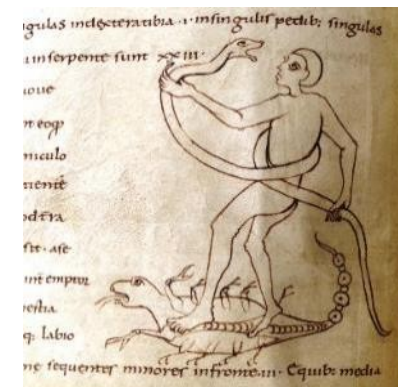 gulas indextera tibia · i · in singulis pedib; singulas
in serpente sunt xxiii ·
oue
niculo
iente
sit · ase
int emptur
estia
q; labio
ne sequenter minores in fronte · iii · Equib; media